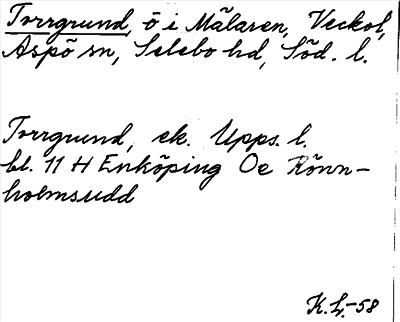 Torrgrund, ö i Mälaren, Veckol,
Aspö sn, Selebo hd, Söd. l.
Torrgrund, ek. Upps. l.
bl. 11 H Enköping Oe Rönn-
holmsudd
K.L.-58